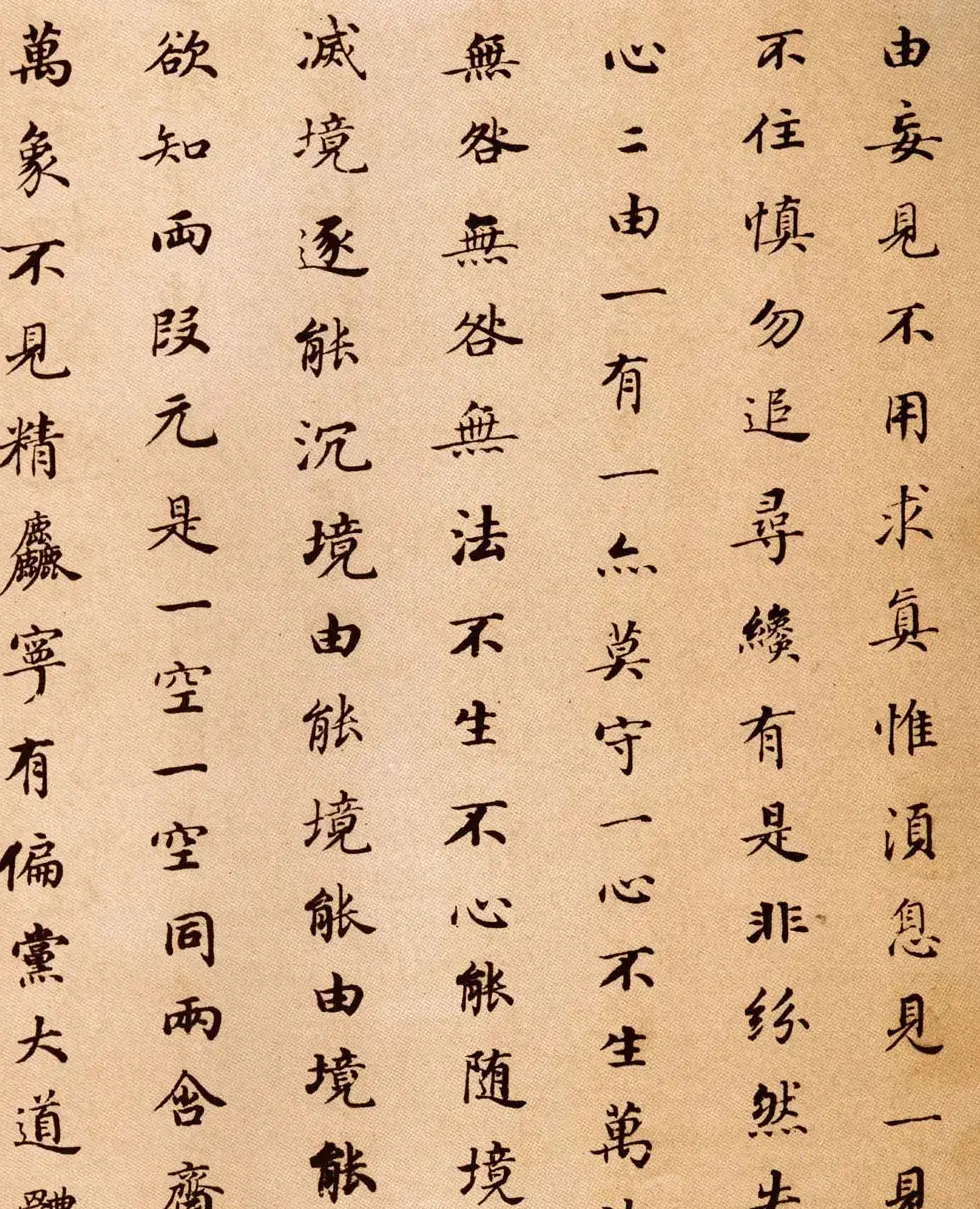 由妄見不用求眞惟湏息見一見
不住慎勿追尋纔有是非紛然失
心二由一有一亦莫守一心不生萬
無咎無咎無法不生不心能随境
滅境逐能沉境由能境能由境能
欲知兩段元是一空一空同兩含齊
萬象不見精麤寧有偏黨大道體